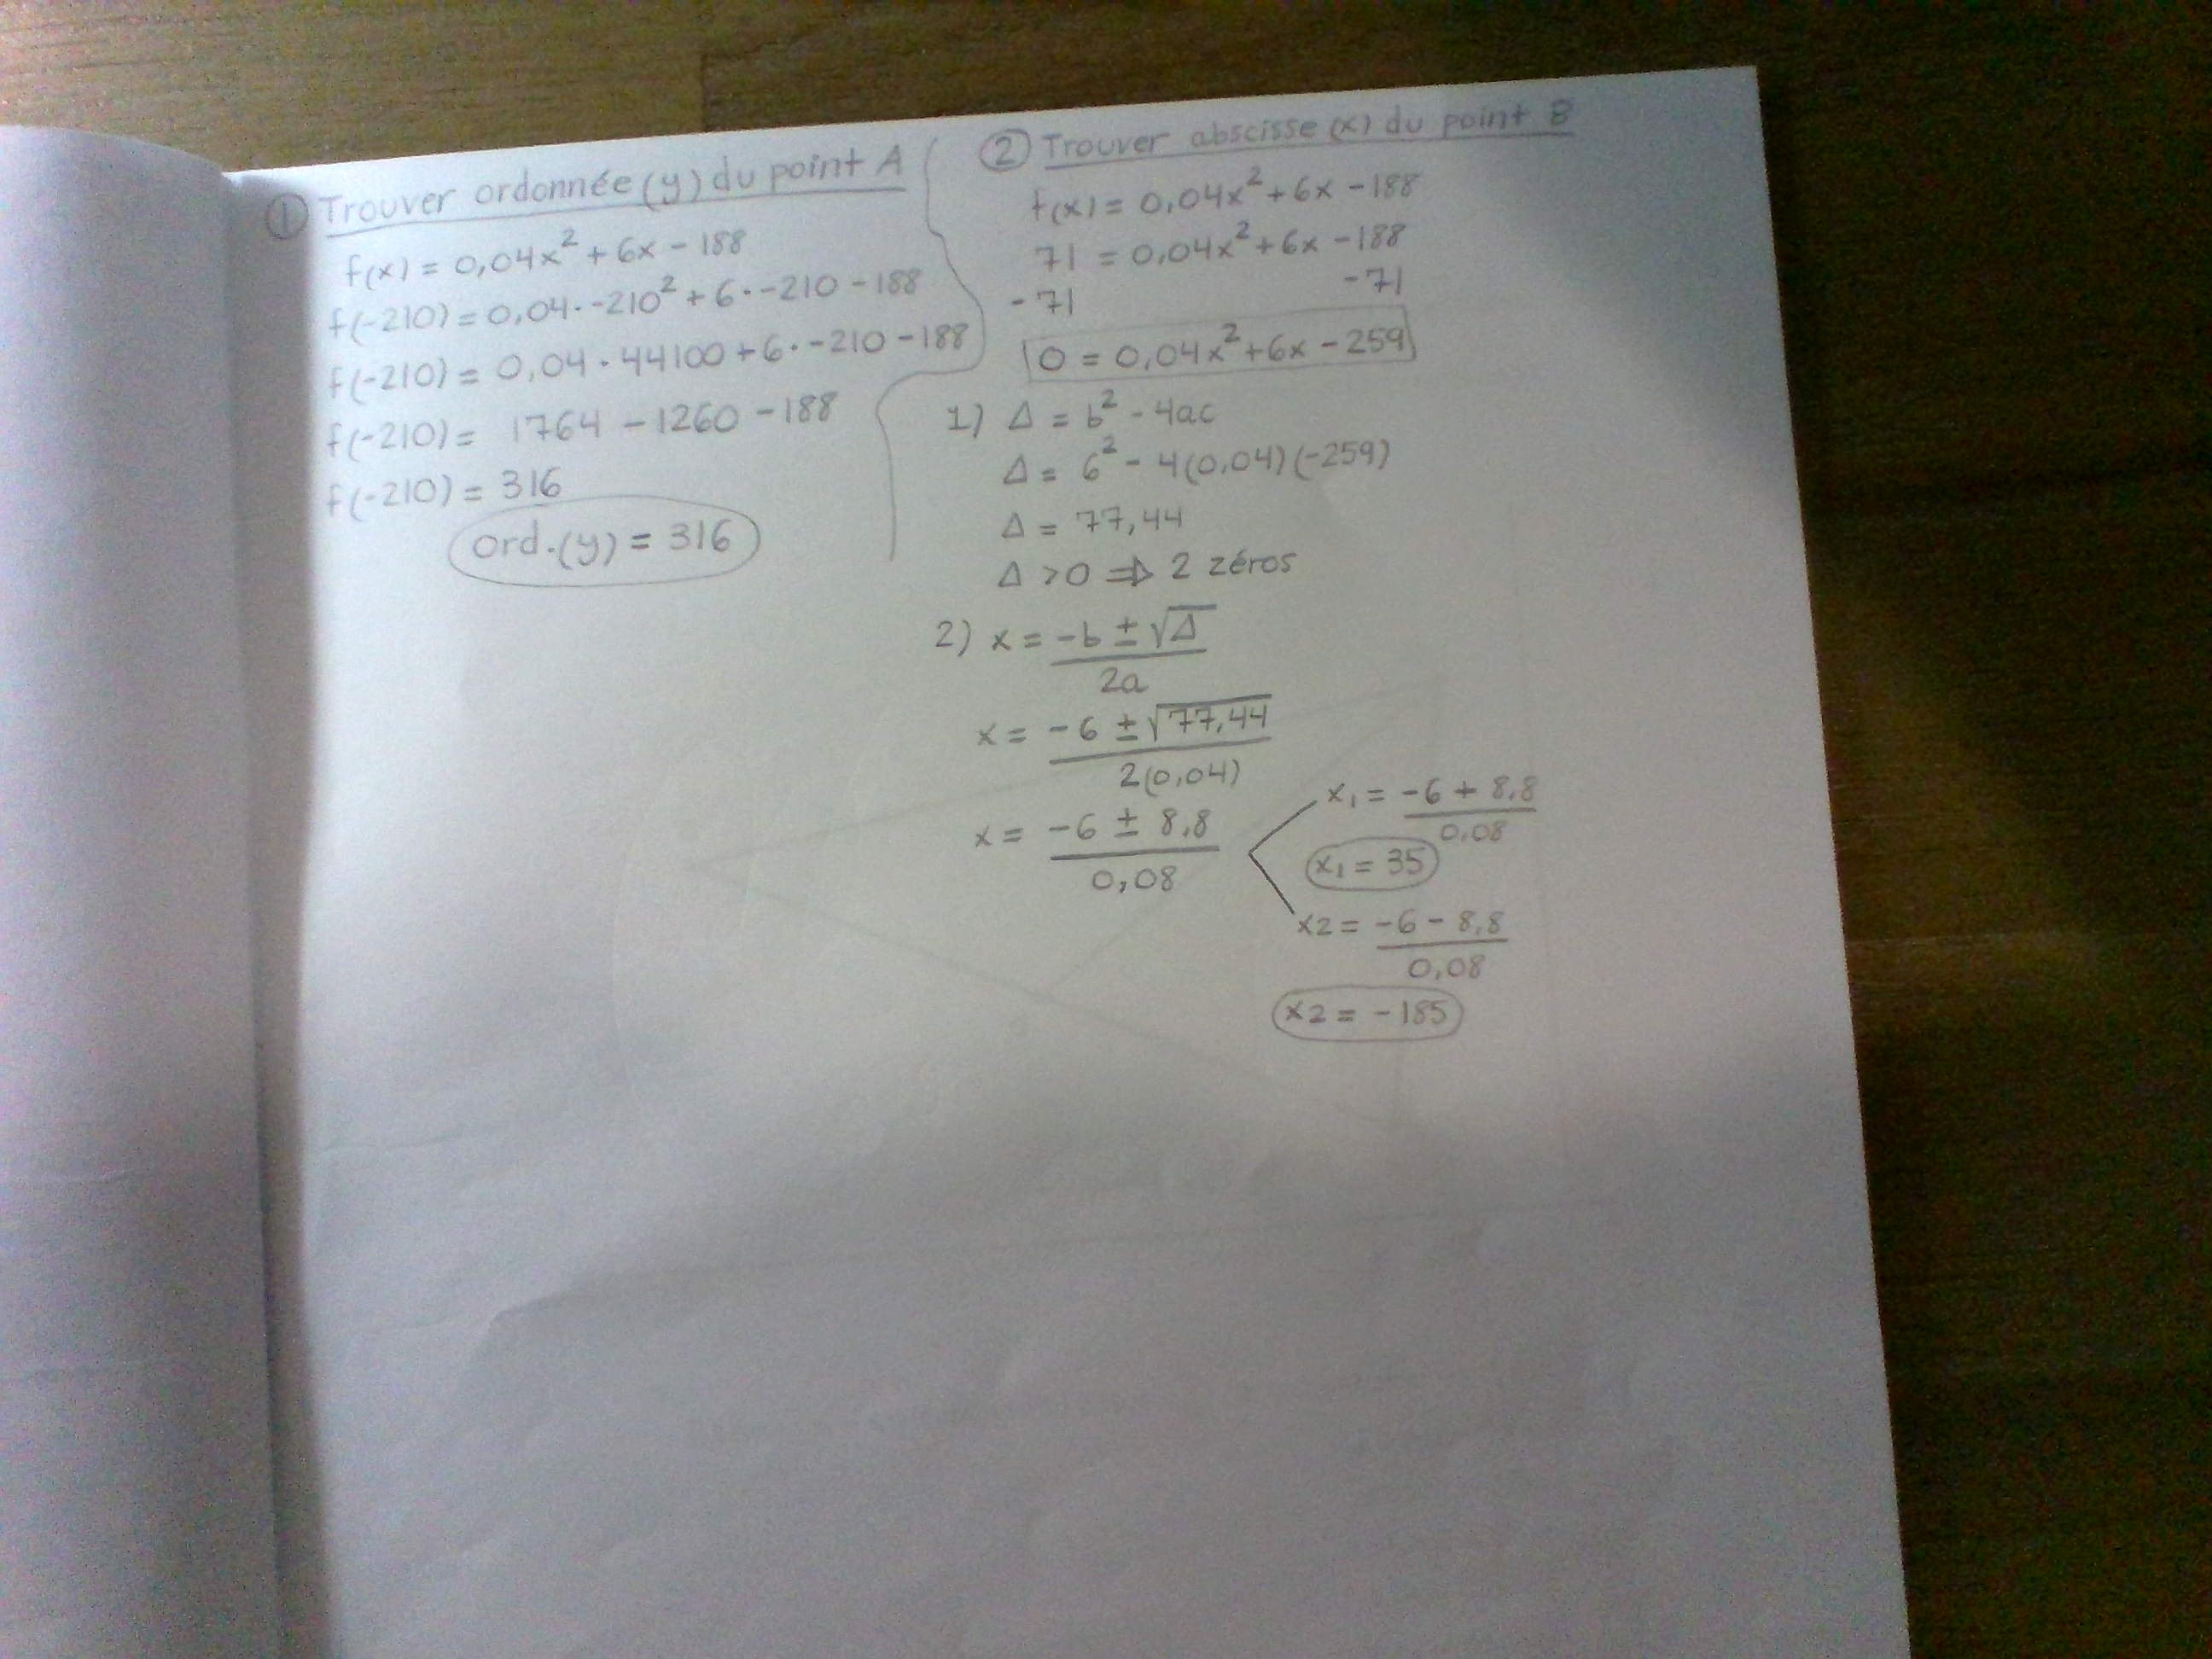 ① Trouver ordonnée (y) du point A
f(x) = 0,04x² + 6x - 188
f(-210) = 0,04 · -210² + 6 · -210 - 188
f(-210) = 0,04 · 44100 + 6 · -210 - 188
f(-210) = 1764 - 1260 - 188
f(-210) = 316
ord.(y) = 316
② Trouver abscisse (x) du point B
f(x) = 0,04x² + 6x - 188
71 = 0,04x² + 6x - 188
-71 -71
0 = 0,04x² + 6x - 259
1) Δ = b² - 4ac
Δ = 6² - 4(0,04)(-259)
Δ = 77,44
Δ > 0 ⇒ 2 zéros
2) x = -b ± √Δ
2a
x = -6 ± √77,44
2(0,04)
x = -6 ± 8,8
0,08
x₁ = -6 + 8,8
0,08
x₁ = 35
x2 = -6 - 8,8
0,08
x2 = -185